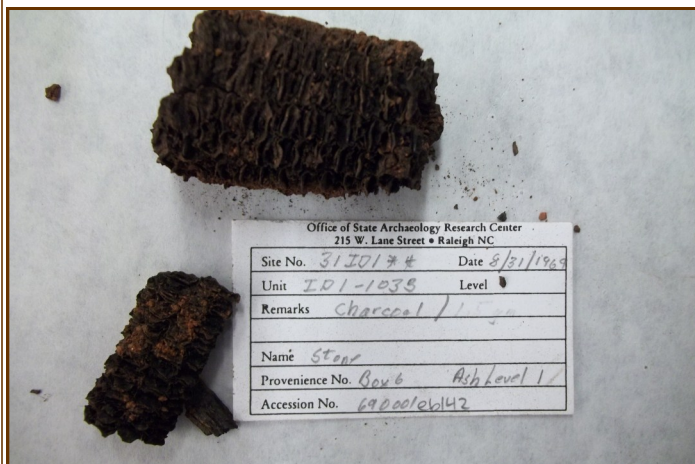 Office of State Archaeology Research Center
215 W. Lane Street • Raleigh NC
Site No. 31ID1** Date 8/31/1969
Unit ID1-1035 Level
Remarks Charcoal /
Name Stone
Provenience No. Box 6 Ash Level 1
Accession No. 69000/eb142